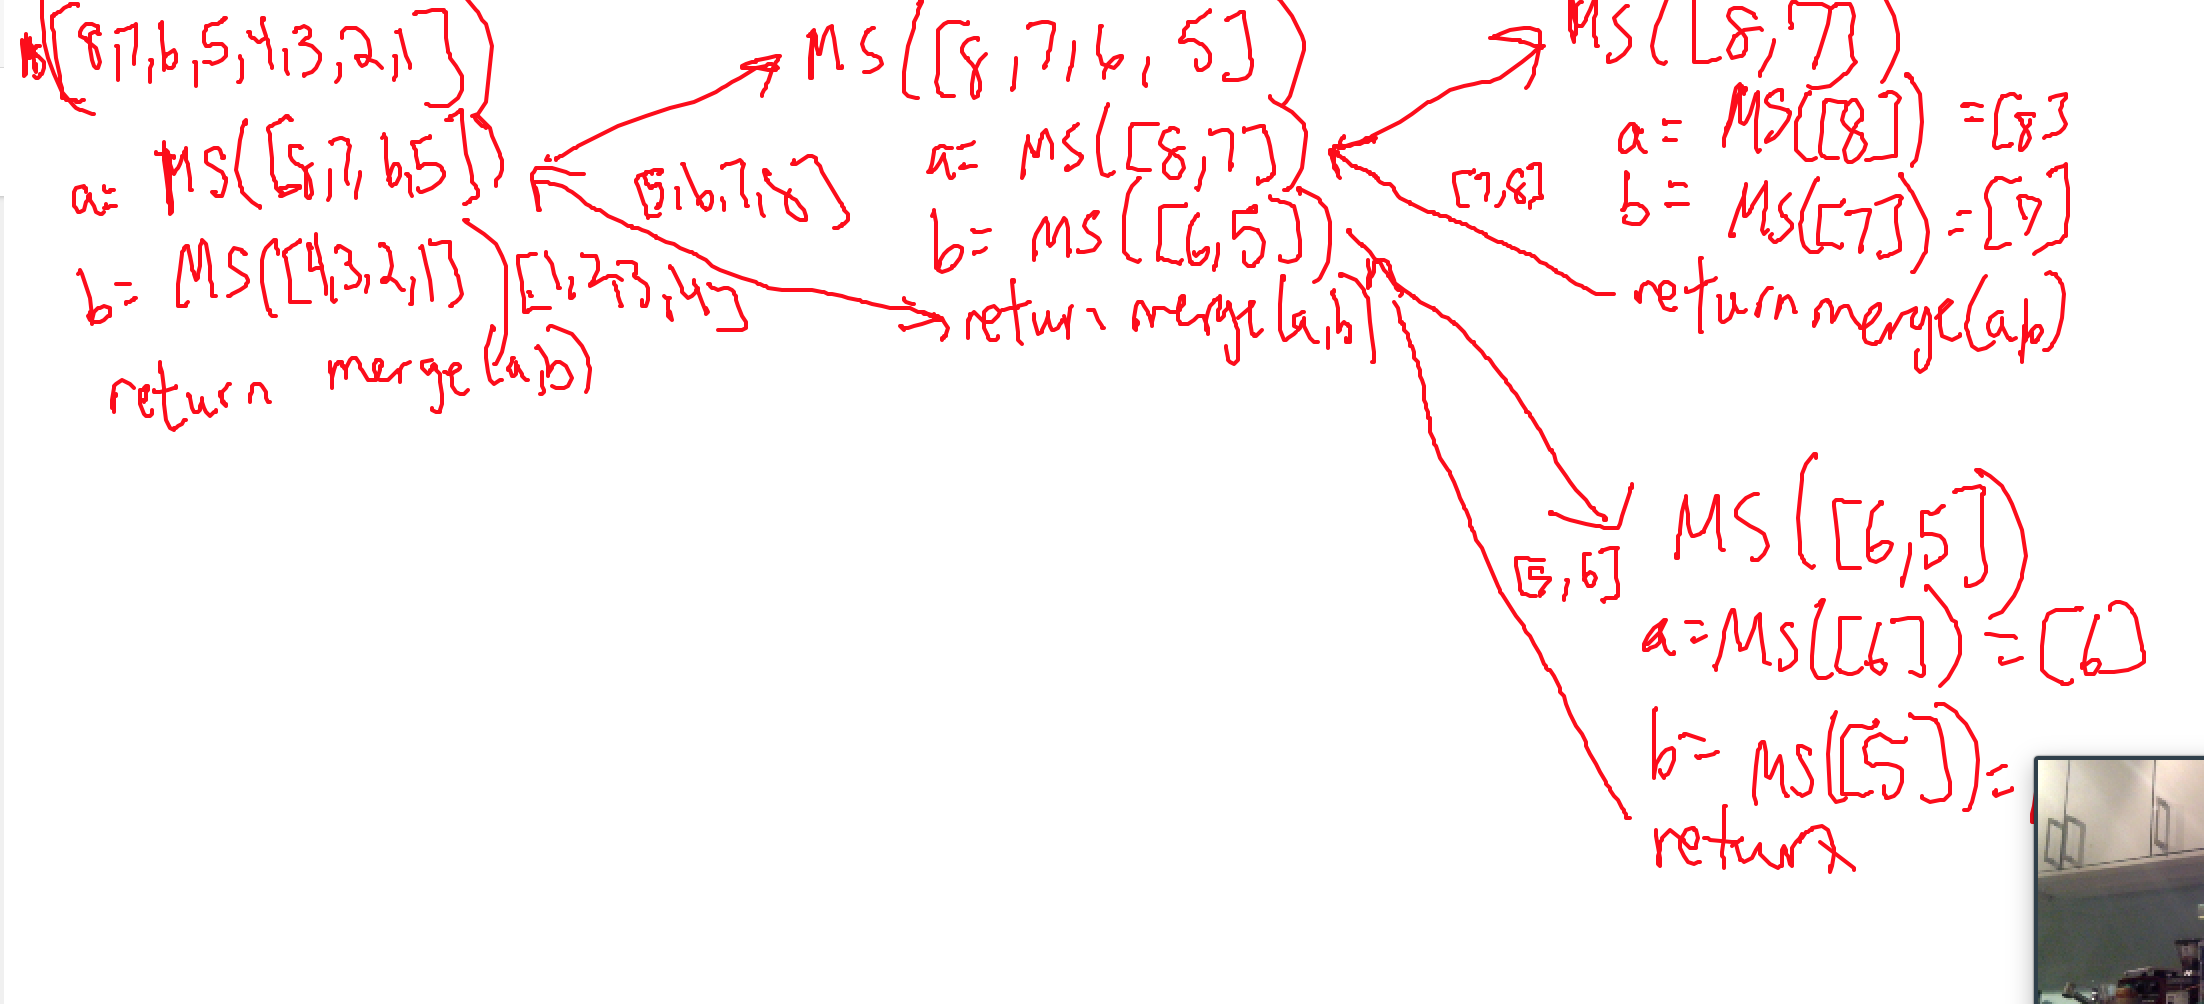 MS([8,7,6,5,4,3,2,1])
a= MS([8,7,6,5])
b= MS([4,3,2,1]) [1,2,3,4]
return merge(a,b)
[5,6,7,8]
MS([8,7,6,5])
a= MS([8,7])
b= MS([6,5])
return merge(a,b)
[7,8]
MS([8,7])
a= MS([8]) =[8]
b= MS([7]) =[7]
return merge(a,b)
[5,6]
MS([6,5])
a=MS([6])=[6]
b= MS([5])=
return